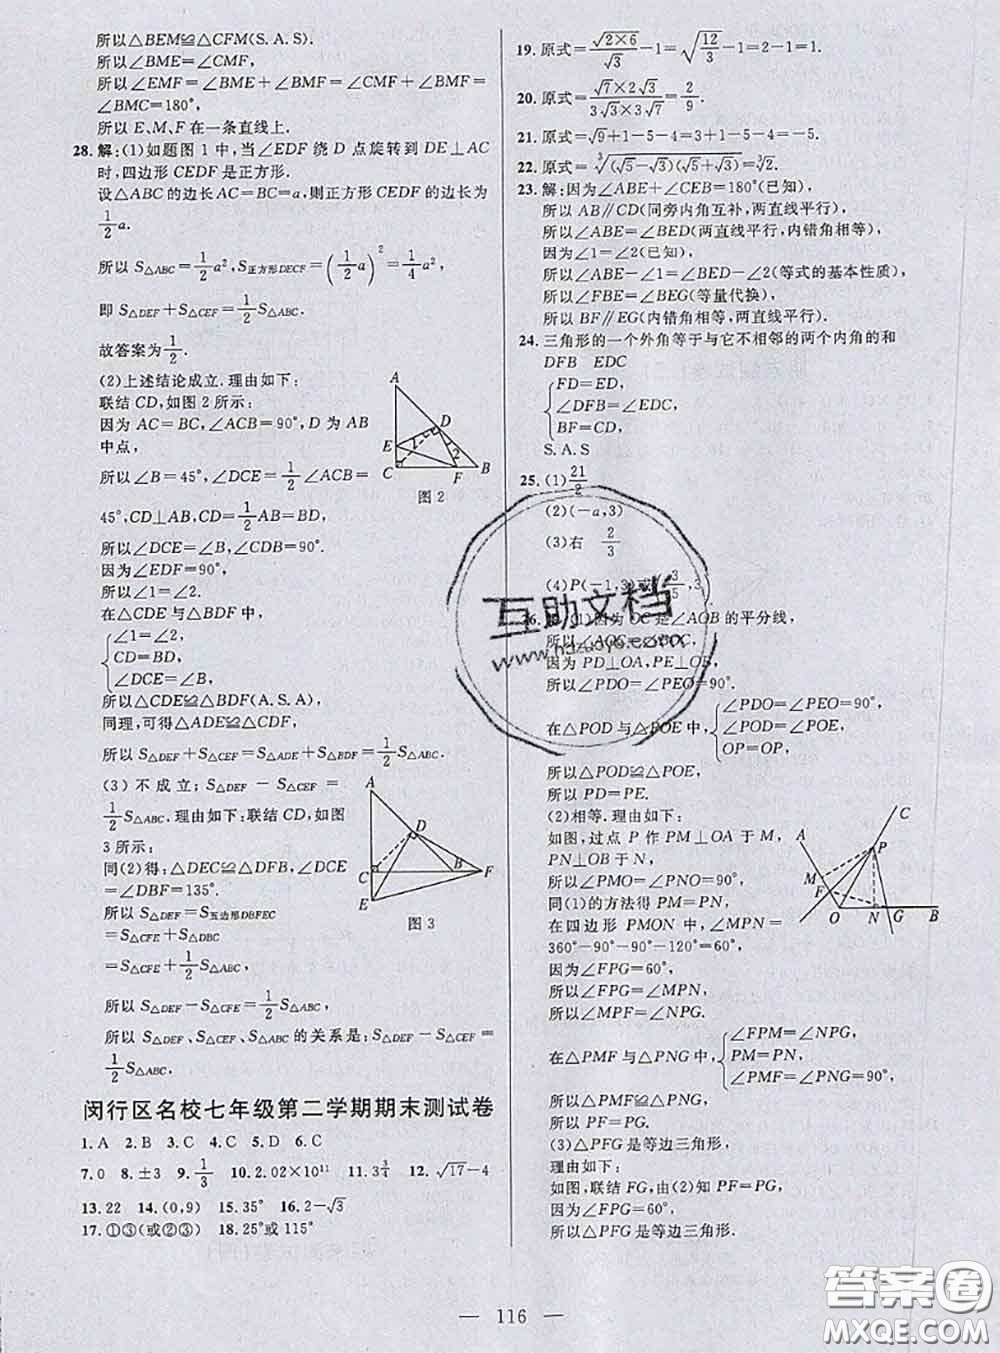 所以△BEM≌△CFM(S.A.S).
所以∠BME=∠CMF,
所以∠EMF=∠BME+∠BMF=∠CMF+∠BMF=
∠BMC=180°,
所以 E、M、F 在一条直线上.
28.解:(1)如题图 1 中,当∠EDF 绕 D 点旋转到 DE⊥AC
时,四边形 CEDF 是正方形.
设△ABC 的边长 AC=BC=a,则正方形 CEDF 的边长为
1/2 a.
所以 S△ABC=1/2 a²,S正方形DECF=(1/2 a)²=1/4 a²,
即 S△DEF+S△CEF=1/2 S△ABC.
故答案为 1/2.
(2)上述结论成立.理由如下:
联结 CD,如图 2 所示:
因为 AC=BC,∠ACB=90°,D 为 AB
中点,
所以∠B=45°,∠DCE=1/2∠ACB=
45°,CD⊥AB,CD=1/2 AB=BD,
所以∠DCE=∠B,∠CDB=90°.
因为∠EDF=90°,
所以∠1=∠2.
在△CDE 与△BDF 中,
∠1=∠2,
CD=BD,
∠DCE=∠B,
所以△CDE≌△BDF(A.S.A).
同理,可得△ADE≌△CDF,
所以 S△DEF+S△CEF=S△ADE+S△BDF=1/2 S△ABC.
(3)不成立;S△DEF-S△CEF=
1/2 S△ABC.理由如下:联结 CD,如图
3 所示:
同(2)得:△DEC≌△DFB,∠DCE
=∠DBF=135°.
所以 S△DEF=S五边形DBFEC
=S△CFE+S△DBC
=S△CFE+1/2 S△ABC,
所以 S△DEF-S△CFE=1/2 S△ABC,
所以 S△DEF、S△CEF、S△ABC 的关系是:S△DEF-S△CEF=
1/2 S△ABC.
A
D
E
1
2
C
F
B
图 2
A
D
C
B
F
E
图 3
闵行区名校七年级第二学期期末测试卷
1.A 2.B 3.C 4.C 5.D 6.C
7.0 8.±3 9.1/3 10.2.02×10¹¹ 11.3^(3/4) 12.√17-4
13.22 14.(0,9) 15.35° 16.2-√3
17.①③(或②③) 18.25°或 115°
19.原式=√(2×6)/√3-1=√(12/3)-1=2-1=1.
20.原式=(√7×2√3)/(3√3×3√7)=2/9.
21.原式=√9+1-5-4=3+1-5-4=-5.
22.原式=³√((√5-√3)(√5+√3))=³√2.
23.解:因为∠ABE+∠CEB=180°(已知),
所以 AB∥CD(同旁内角互补,两直线平行),
所以∠ABE=∠BED(两直线平行,内错角相等),
因为∠1=∠2(已知),
所以∠ABE-∠1=∠BED-∠2(等式的基本性质),
所以∠FBE=∠BEG(等量代换),
所以 BF∥EG(内错角相等,两直线平行).
24.三角形的一个外角等于与它不相邻的两个内角的和
DFB EDC
FD=ED,
∠DFB=∠EDC,
BF=CD,
S.A.S
25.(1)21/2
(2)(-a,3)
(3)右 2/3
(4)P(-1,3)或
(1)因为 OC 是∠AOB 的平分线,
所以∠AOC=∠BOC,
因为 PD⊥OA,PE⊥OB,
所以∠PDO=∠PEO=90°.
在△POD 与△POE 中,
∠PDO=∠PEO=90°,
∠POD=∠POE,
OP=OP,
所以△POD≌△POE,
所以 PD=PE.
(2)相等.理由如下:
如图,过点 P 作 PM⊥OA 于 M,
PN⊥OB 于 N,
所以∠PMO=∠PNO=90°,
同(1)的方法得 PM=PN,
在四边形 PMON 中,∠MPN=
360°-90°-90°-120°=60°,
因为∠FPG=60°,
所以∠FPG=∠MPN,
所以∠MPF=∠NPG.
在△PMF 与△PNG 中,
∠FPM=∠NPG,
PM=PN,
∠PMF=∠PNG=90°,
所以△PMF≌△PNG,
所以 PF=PG.
(3)△PFG 是等边三角形,
理由如下:
如图,联结 FG,由(2)知 PF=PG,
因为∠FPG=60°,
所以△PFG 是等边三角形.
C
A
P
M
F
O
N
G
B
互助文档
— 116 —
答案卷
MXQE.COM